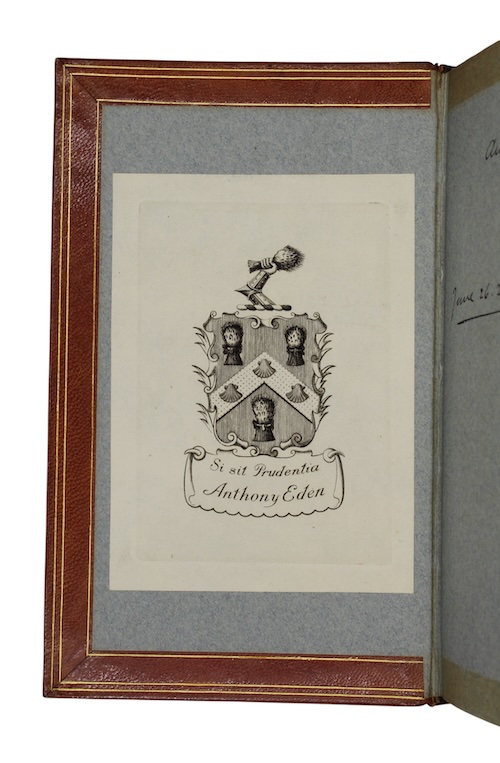 Si sit Prudentia
Anthony Eden
June 26